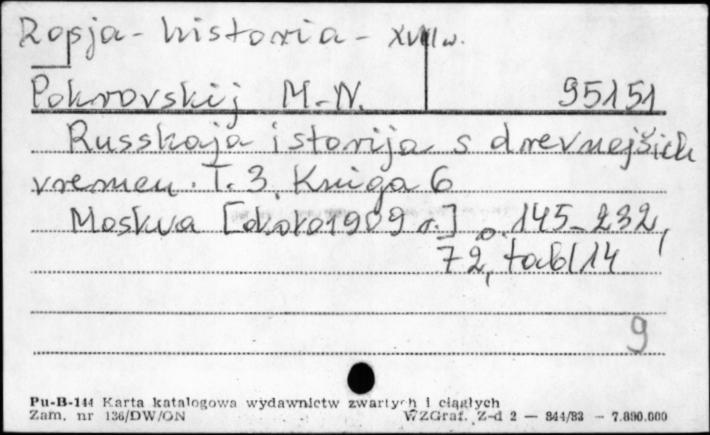 Rosja - historia - XVIII w.
Pokrovskij M. N. 95151
Russkaja istorija s drevnejšich
vremen. T. 3, Kniga 6
Moskva [około 1909 r.] s. 145-232,
72, tabl 14
9
Pu-B-144 Karta katalogowa wydawnictw zwartych i ciągłych
Zam. nr 136/DW/ON WZGraf. Z-d 2 — 844/83 — 7.890.000